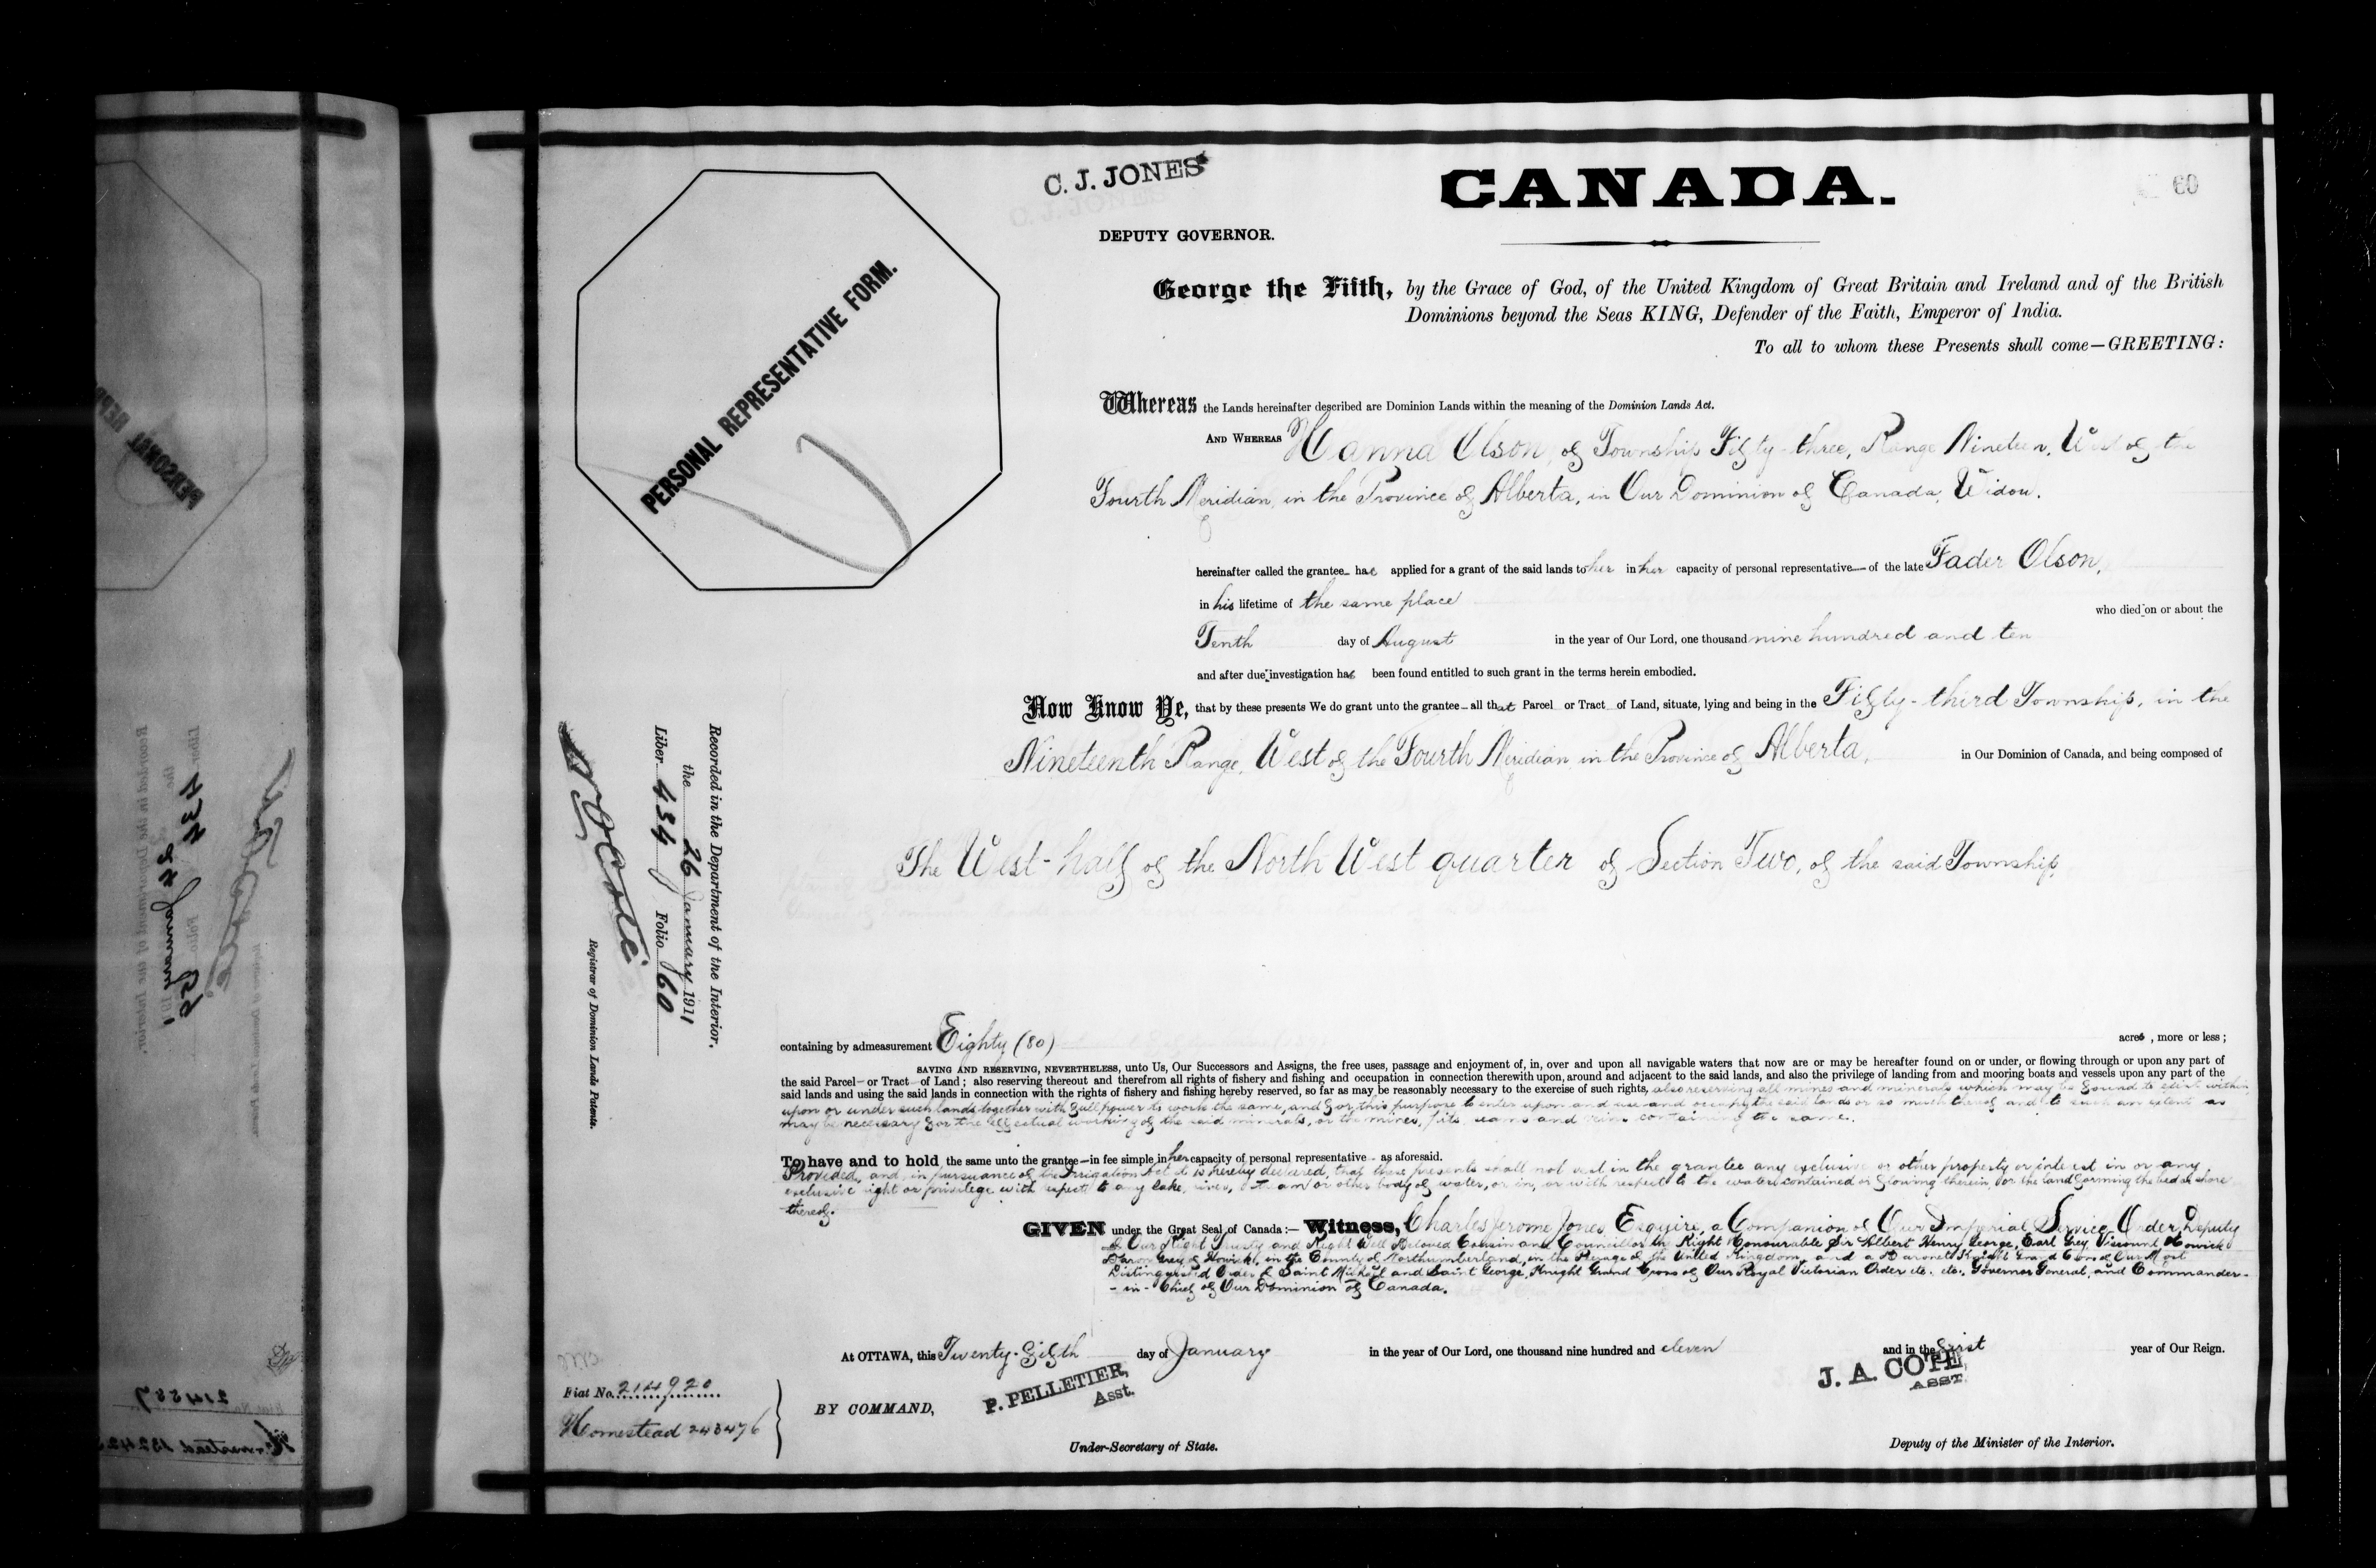 C. J. JONES
DEPUTY GOVERNOR.
CANADA.
60
PERSONAL REPRESENTATIVE FORM.
George the Fifth, by the Grace of God, of the United Kingdom of Great Britain and Ireland and of the British
Dominions beyond the Seas KING, Defender of the Faith, Emperor of India.
To all to whom these Presents shall come—GREETING:
Whereas the Lands hereinafter described are Dominion Lands within the meaning of the Dominion Lands Act.
AND WHEREAS Hanna Olson, of Township Fifty-three, Range Nineteen, West of the
Fourth Meridian, in the Province of Alberta, in Our Dominion of Canada, Widow.
hereinafter called the grantee has applied for a grant of the said lands to her in her capacity of personal representative of the late Fader Olson,
in his lifetime of the same place
who died on or about the
Tenth day of August in the year of Our Lord, one thousand nine hundred and ten
and after due investigation has been found entitled to such grant in the terms herein embodied.
Now Know Ye, that by these presents We do grant unto the grantee all that Parcel or Tract of Land, situate, lying and being in the Fifty-third Township, in the
Nineteenth Range, West of the Fourth Meridian, in the Province of Alberta, in Our Dominion of Canada, and being composed of
The West-half of the North West quarter of Section Two, of the said Township,
containing by admeasurement Eighty (80) acres, more or less;
SAVING AND RESERVING, NEVERTHELESS, unto Us, Our Successors and Assigns, the free uses, passage and enjoyment of, in, over and upon all navigable waters that now are or may be hereafter found on or under, or flowing through or upon any part of
the said Parcel or Tract of Land; also reserving thereout and therefrom all rights of fishery and fishing and occupation in connection therewith upon, around and adjacent to the said lands, and also the privilege of landing from and mooring boats and vessels upon any part of the
said lands and using the said lands in connection with the rights of fishery and fishing hereby reserved, so far as may be reasonably necessary to the exercise of such rights, also reserving all mines and minerals which may be found to exist within,
upon or under such lands, together with full power to work the same, and for this purpose to enter upon and use and occupy the said lands or so much thereof and to such an extent as
may be necessary for the effectual working of the said minerals, or the mines, pits, seams and veins containing the same.
To have and to hold the same unto the grantee—in fee simple in her capacity of personal representative as aforesaid.
Provided, and in pursuance of the Irrigation Act it is hereby declared, that these presents shall not vest in the grantee any exclusive or other property or interest in or any
exclusive right or privilege with respect to any lake, river, stream or other body of water, or in, or with respect to the water contained or flowing therein, or the land forming the bed or shore
thereof.
GIVEN under the Great Seal of Canada:— Witness, Charles Jerome Jones, Esquire, a Companion of Our Imperial Service Order, Deputy
of Our Right Trusty and Right Well Beloved Cousin and Councillor the Right Honourable Sir Albert Henry George, Earl Grey, Viscount Howick
Baron Grey of Howick, in the County of Northumberland, in the Peerage of the United Kingdom, and a Baronet; Knight Grand Cross of Our Most
Distinguished Order of Saint Michael and Saint George, Knight Grand Cross of Our Royal Victorian Order etc. etc., Governor General, and Commander-
-in-Chief of Our Dominion of Canada.
At OTTAWA, this Twenty-sixth day of January in the year of Our Lord, one thousand nine hundred and eleven and in the first year of Our Reign.
BY COMMAND,
P. PELLETIER,
Asst.
Under-Secretary of State.
J. A. COTE,
ASST.
Deputy of the Minister of the Interior.
Recorded in the Department of the Interior,
the 26 January 1911
Liber 434 Folio 60
N O Coté
Registrar of Dominion Lands Patents.
Fiat No. 214920
Homestead 243476